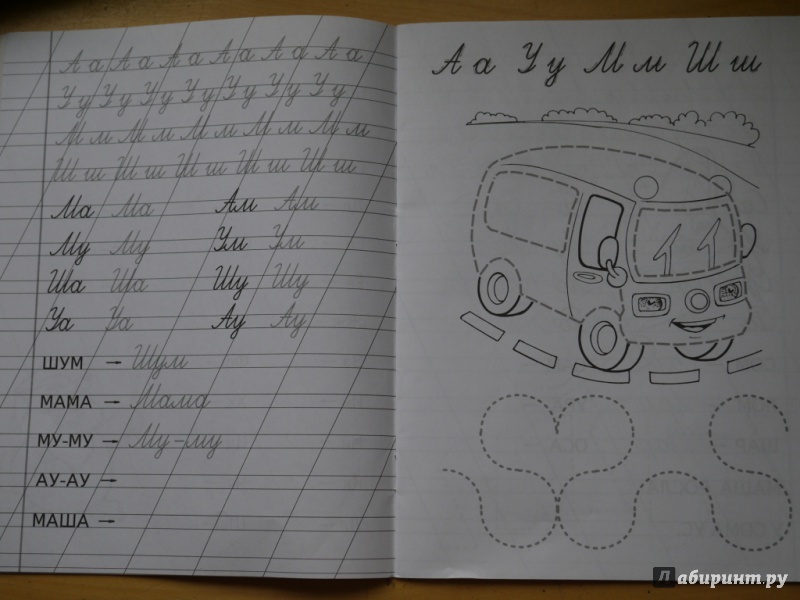 А а А а А а А а А а А а
У у У у У у У у У у У у У у
М м М м М м М м М м
Ш ш Ш ш Ш ш Ш ш Ш ш
Ма Ма Ам Ам
Му Му Ум Ум
Ша Ша Шу Шу
Уа Уа Ау Ау
ШУМ → Шум
МАМА → Мама
МУ-МУ → Му-му
АУ-АУ →
МАША →
А а У у М м Ш ш
Лабиринт.ру